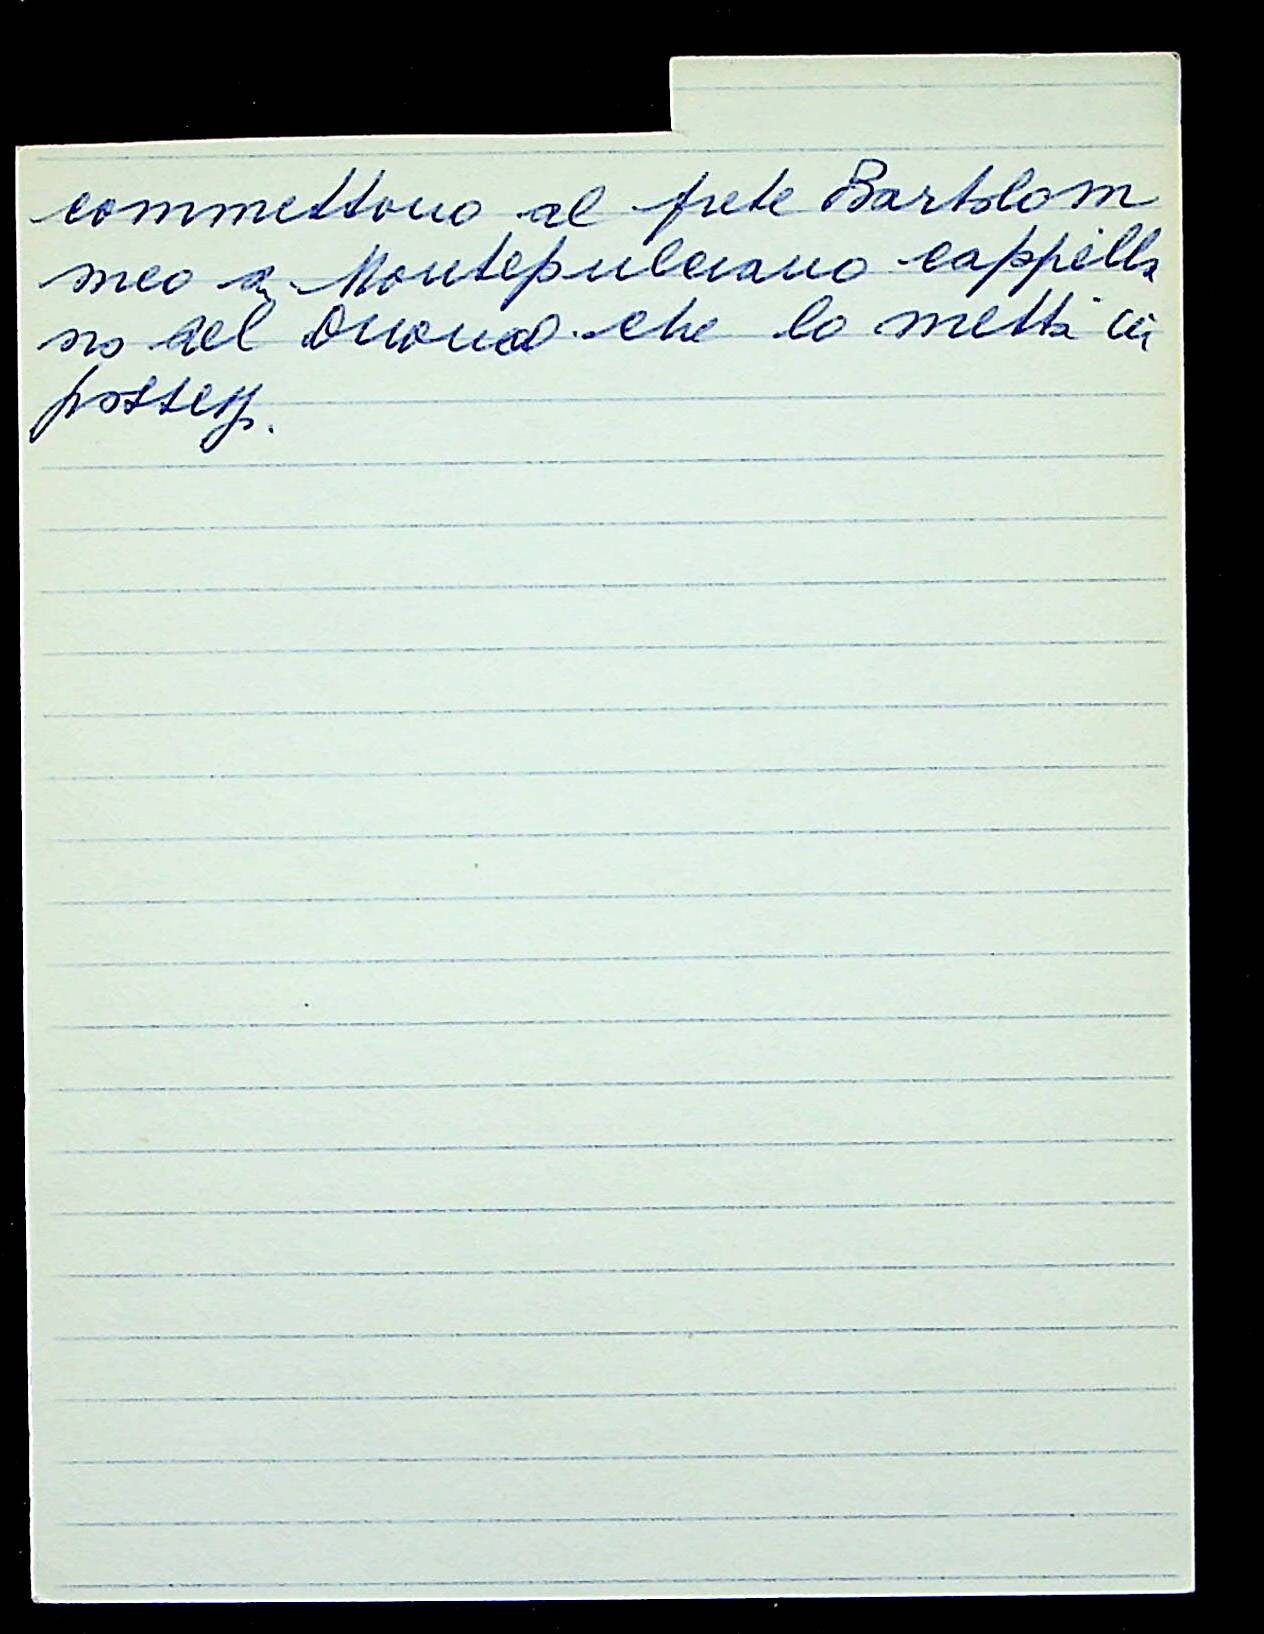 commettono al prete Bartolom
meo da Montepulciano cappella
no del Duomo che lo metta in
possesso.